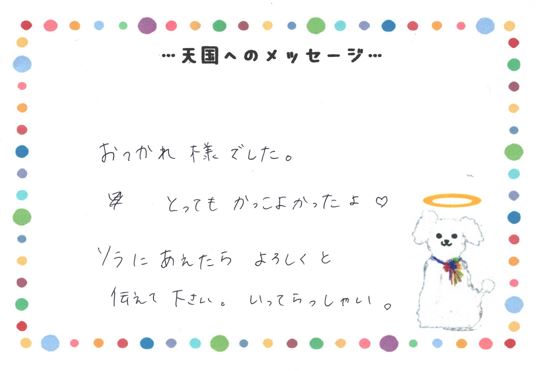 …天国へのメッセージ…
おつかれ様でした。
とってもかっこよかったよ♡
ソラにあえたらよろしくと
伝えて下さい。いってらっしゃい。